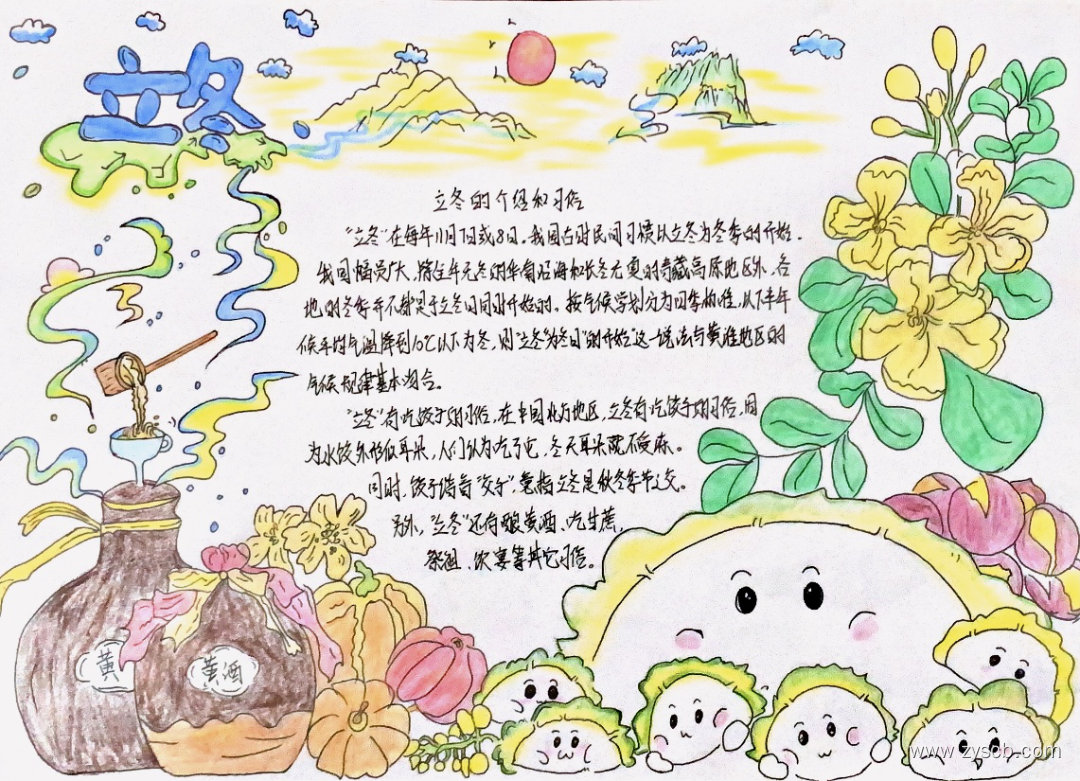 立冬
立冬的介绍和习俗
"立冬"在每年11月7日或8日。我国古时民间习惯以立冬为冬季的开始。
我国幅员广大，除全年无冬的华南沿海和长冬无夏的青藏高原地区外，各
地的冬季并不都是于立冬日同时开始的。按气候学划分为四季标准，以下半年
候平均气温降到10℃以下为冬，则"立冬为冬日"的开始"这一说法与黄淮地区的
气候规律基本吻合。
"立冬"有吃饺子的习俗，在中国北方地区，立冬有吃饺子的习俗，因
为水饺外形似耳朵，人们认为吃了它，冬天耳朵就不受冻。
同时，饺子谐音"交子"，意指立冬是秋冬季节之交。
另外，"立冬"还有酿黄酒、吃甘蔗，
祭祖、饮宴等其它习俗。
黄
黄酒
www.zyscb.com